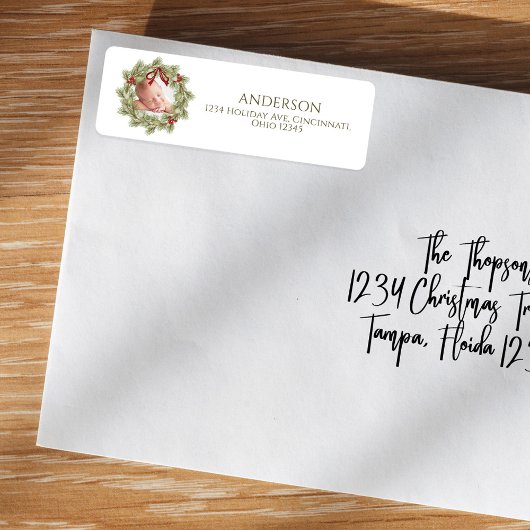 ANDERSON
1234 Holiday Ave, Cincinnati,
Ohio 12345
The Thopson
1234 Christmas Tr
Tampa, Floida 123